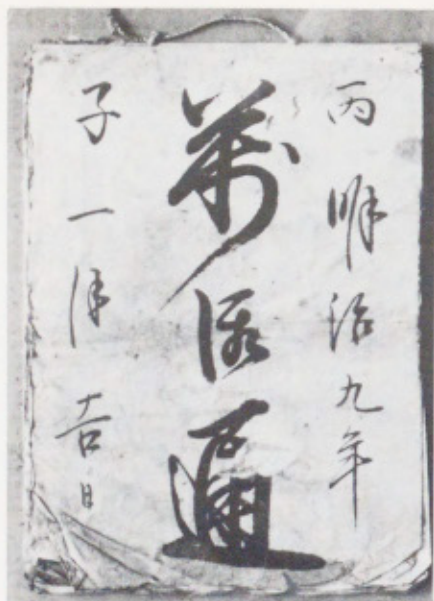 丙 明治九年
萬通
子 一月 吉日